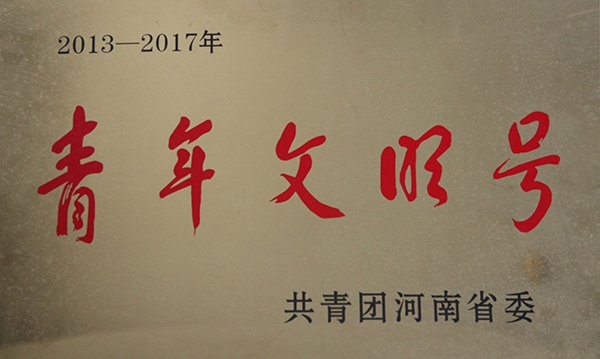 2013—2017年
青年文明号
共青团河南省委